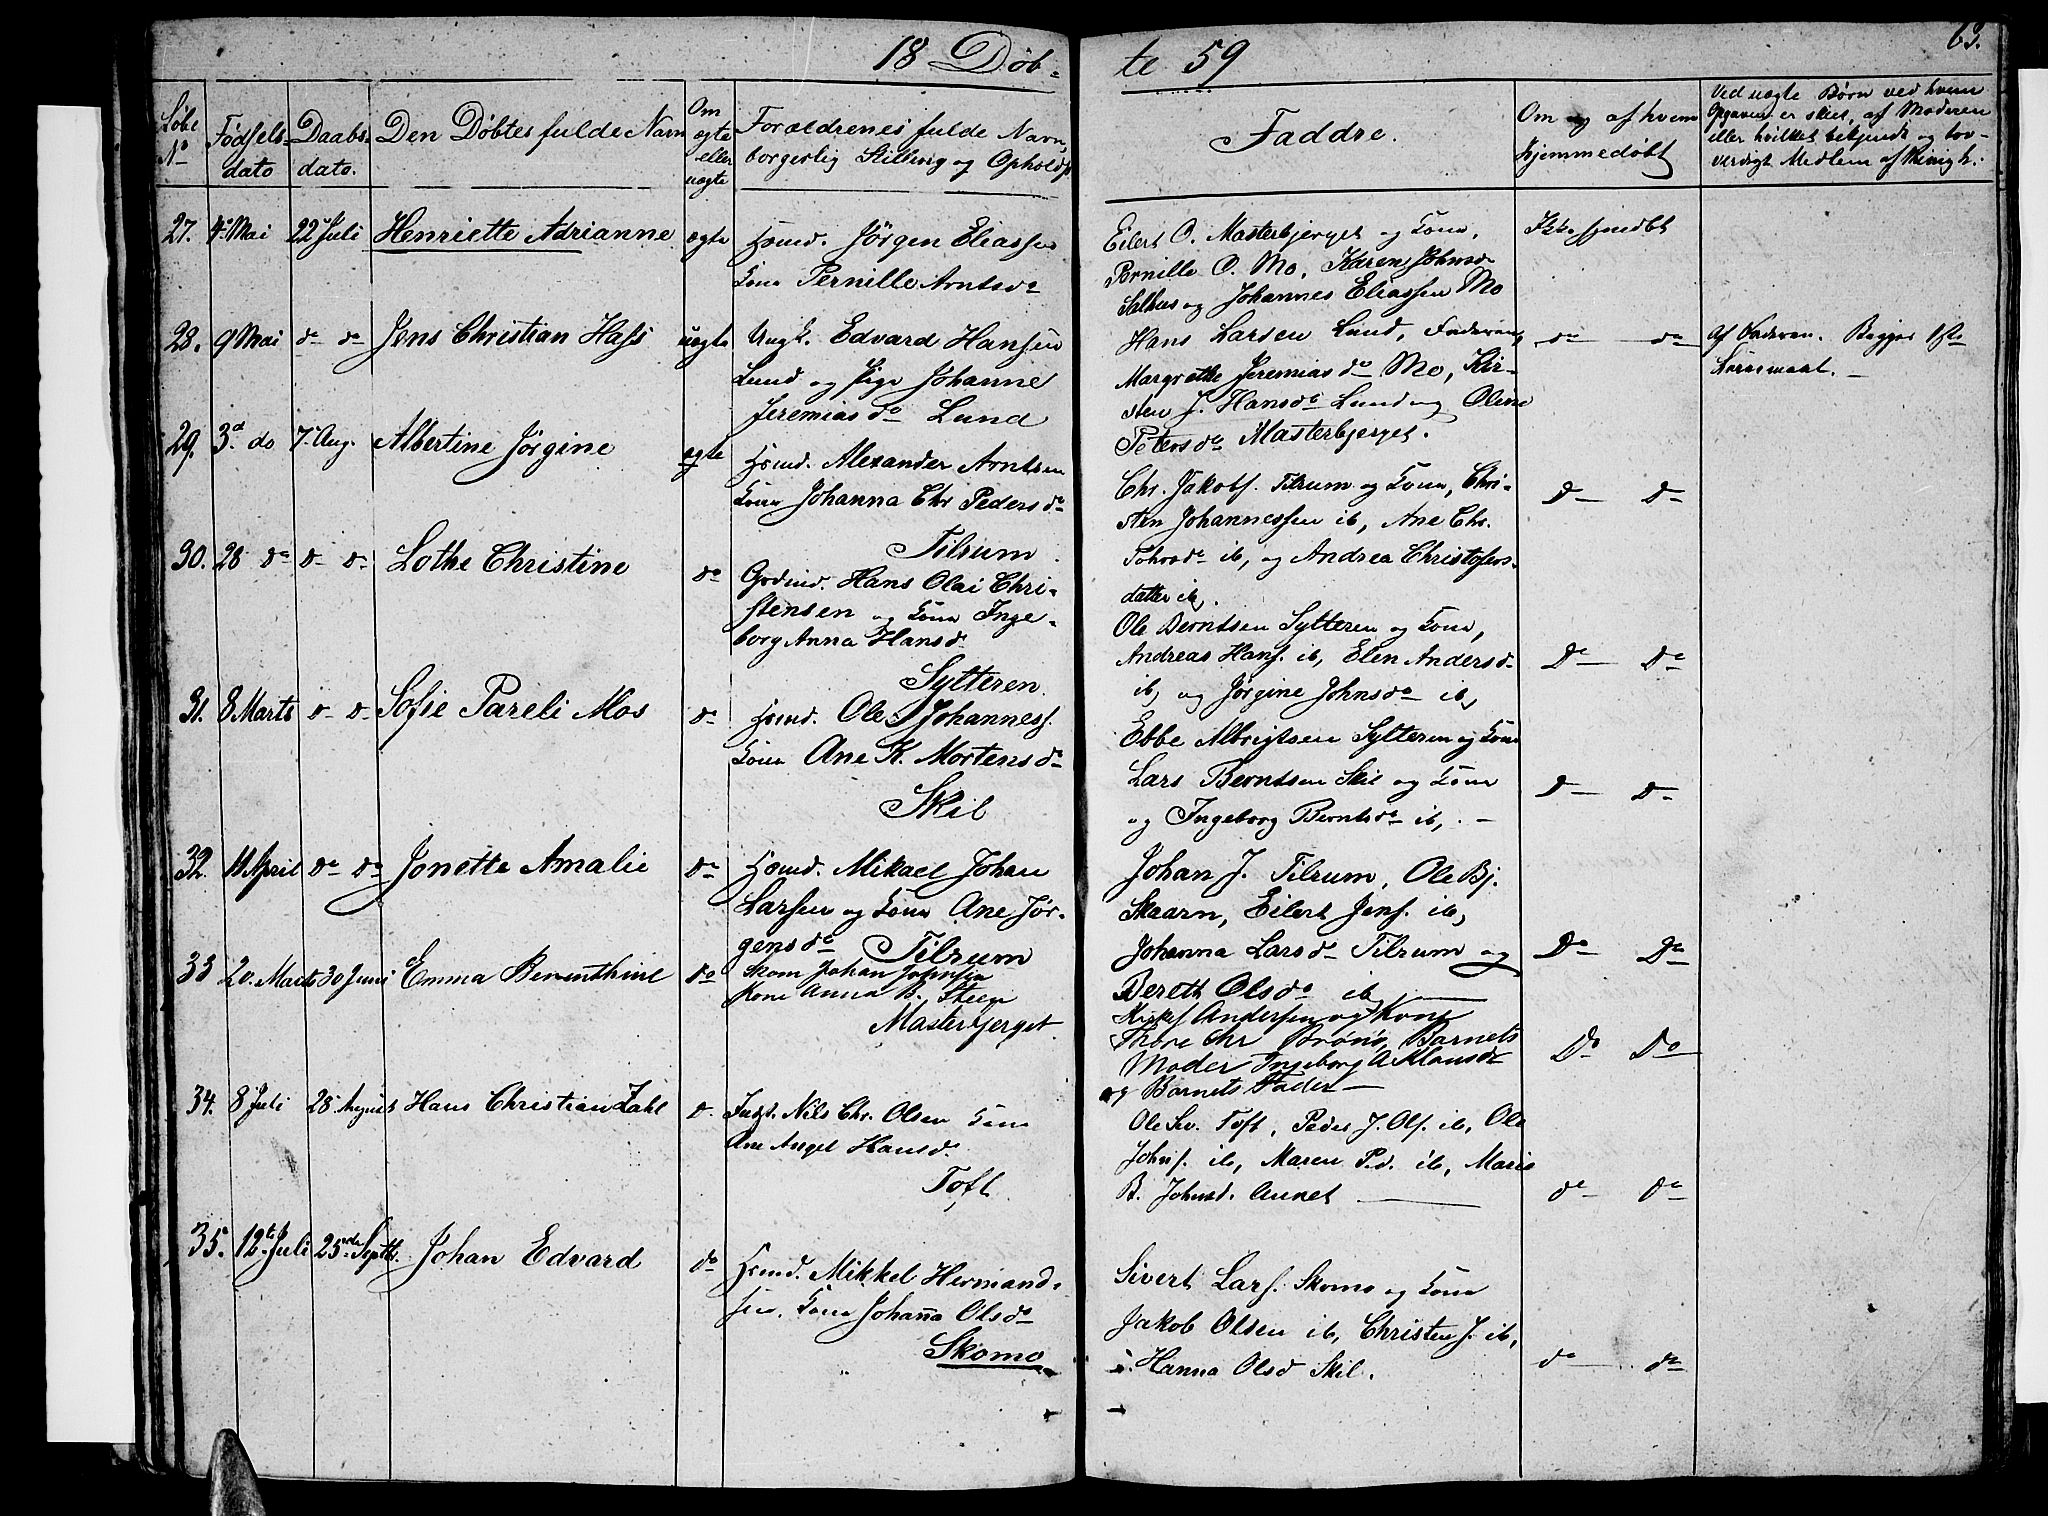 18 Døb-
te 59
63.
Løbe
No
Fødsels-
dato
Daabs-
dato.
Den Døbtes fulde Navn
Om
ægte
eller
uægte
Forældrenes fulde Navn,
borgerlig Stilling og Opholdss
Faddre.
Om og af hvem
hjemmedøbt
Ved uægte Børn ved hvem
Opgaven er skeet, af Moderen
eller hvilket bekjendt og tro-
værdigt Medlem af Menigh.
27. 4 Mai 22 Juli Henriette Adrianne ægte Hsmd. Jørgen Eliassen
Kone Pernille Arntsd
Eilert O. Masterbjerget og Kone,
Pernille O. Mo, Karen Johnsd
og Johannes Eliassen Mo
Ikke hjmdbt
28. 9 Mai do do Jens Christian Hass uægte Ungk. Edvard Hansen
Lund og Pige Johanne
Jeremiasdo Lund
Hans Larsen Lund, Faderen,
Margrethe Jeremiasdo Mo, Kir-
sten J. Hansdo Lund og Oline
Petersdo Masterbjerget.
do do
Af Faderen. Begges 1ste
Leiermaal.
29. 3d do 7 Aug. Albertine Jørgine ægte Hsmd. Alexander Arntsen
Kone Johanna Chr Pedersdo
Tilrum
Chr. Jakobs. Tilrum og Kone, Chri-
sten Johannessen ib, Ane Chr.
Torsdo ib, og Andrea Christofers-
datter ib.
Do Do
30. 28 do do do Lothe Christine do Grdmd. Hans Olai Chri-
stensen og Kone Inge-
borg Anna Hansd
Sytteren
Ole Berntsen Sytteren og Kone,
Andreas Hans. ib, Elen Andersd
ib, og Jørgine Johnsdo ib,
Do Do
31. 8 Marts do do Sofie Pareli Mos do Hsmd. Ole Johanness.
Kone Ane K. Mortensdo
Skil
Ebbe Albrigtsen Sytteren og Kone
Lars Berntsen Skil og Kone
og Ingeborg Berntsdo ib,. —
Do Do
32. 11 April do do Jonette Amalie do Hsmd. Mikael Johan
Larsen og Kone Ane Jør-
gensdo Tilrum
Johan J. Tilrum, Ole Bj.
Skaarn, Eilert Jens. ib,
Johanna Larsdo Tilrum og
Bereth Olsdo ib,
Do Do
33 20. Marts 30 Juni Emma do Skom Johan Johnsen
Kone Anna B. Steen
Masterbjerget.
Andersen og Kone
Thore Chr Brønø, Barnets
Moder Ingeborg A Klausd
og Barnets Fader —
Do Do
34. 8 Juli 28 August Hans Christian Zahl do Inds. Nils Chr. Olsen Kone
Ane Angel Hansd.
Toft.
Ole Siv. Toft, Peder J. Ols. ib, Ole
Johns. ib, Maren P.d. ib, Marie
B. Johnsd. Aunet
do do
35. 12te Juli 25nde Septbr. Johan Edvard do Hsmd. Mikkel Hermand-
sen. Kone Johanna Olsdo
Skomo
Sivert Lars. Skomo og Kone
Jakob Olsen ib, Christen J. ib,
Hanna Olsd Skil.
do do